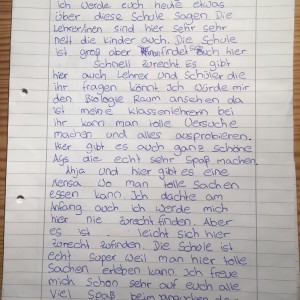 Ich werde euch heute etwas
über diese Schule sagen. Die
LehrerInnen sind hier sehr sehr
nett die kinder auch. Die Schule
ist groß aber findet euch hier
schnell zurecht Es gibt
hier auch Lehrer und Schüler die
ihr fragen könnt. Ich würde mir
den Biologie Raum ansehen da
ist meine klassenlehrerin bei
ihr kann man tolle Versuche
machen und alles ausprobieren.
Hier gibt es auch ganz schöne
AGs die echt sehr Spaß machen.
Ahja und hier gibt es eine
Mensa wo man tolle Sachen
essen kann. Ich dachte am
Anfang auch ich werde mich
hier nie zurecht finden. Aber
es ist leicht sich hier
zurecht zufinden. Die Schule ist
echt super weil man hier tolle
Sachen erleben kann. Ich freue
mich schon sehr auf euch alle
Viel Spaß beim